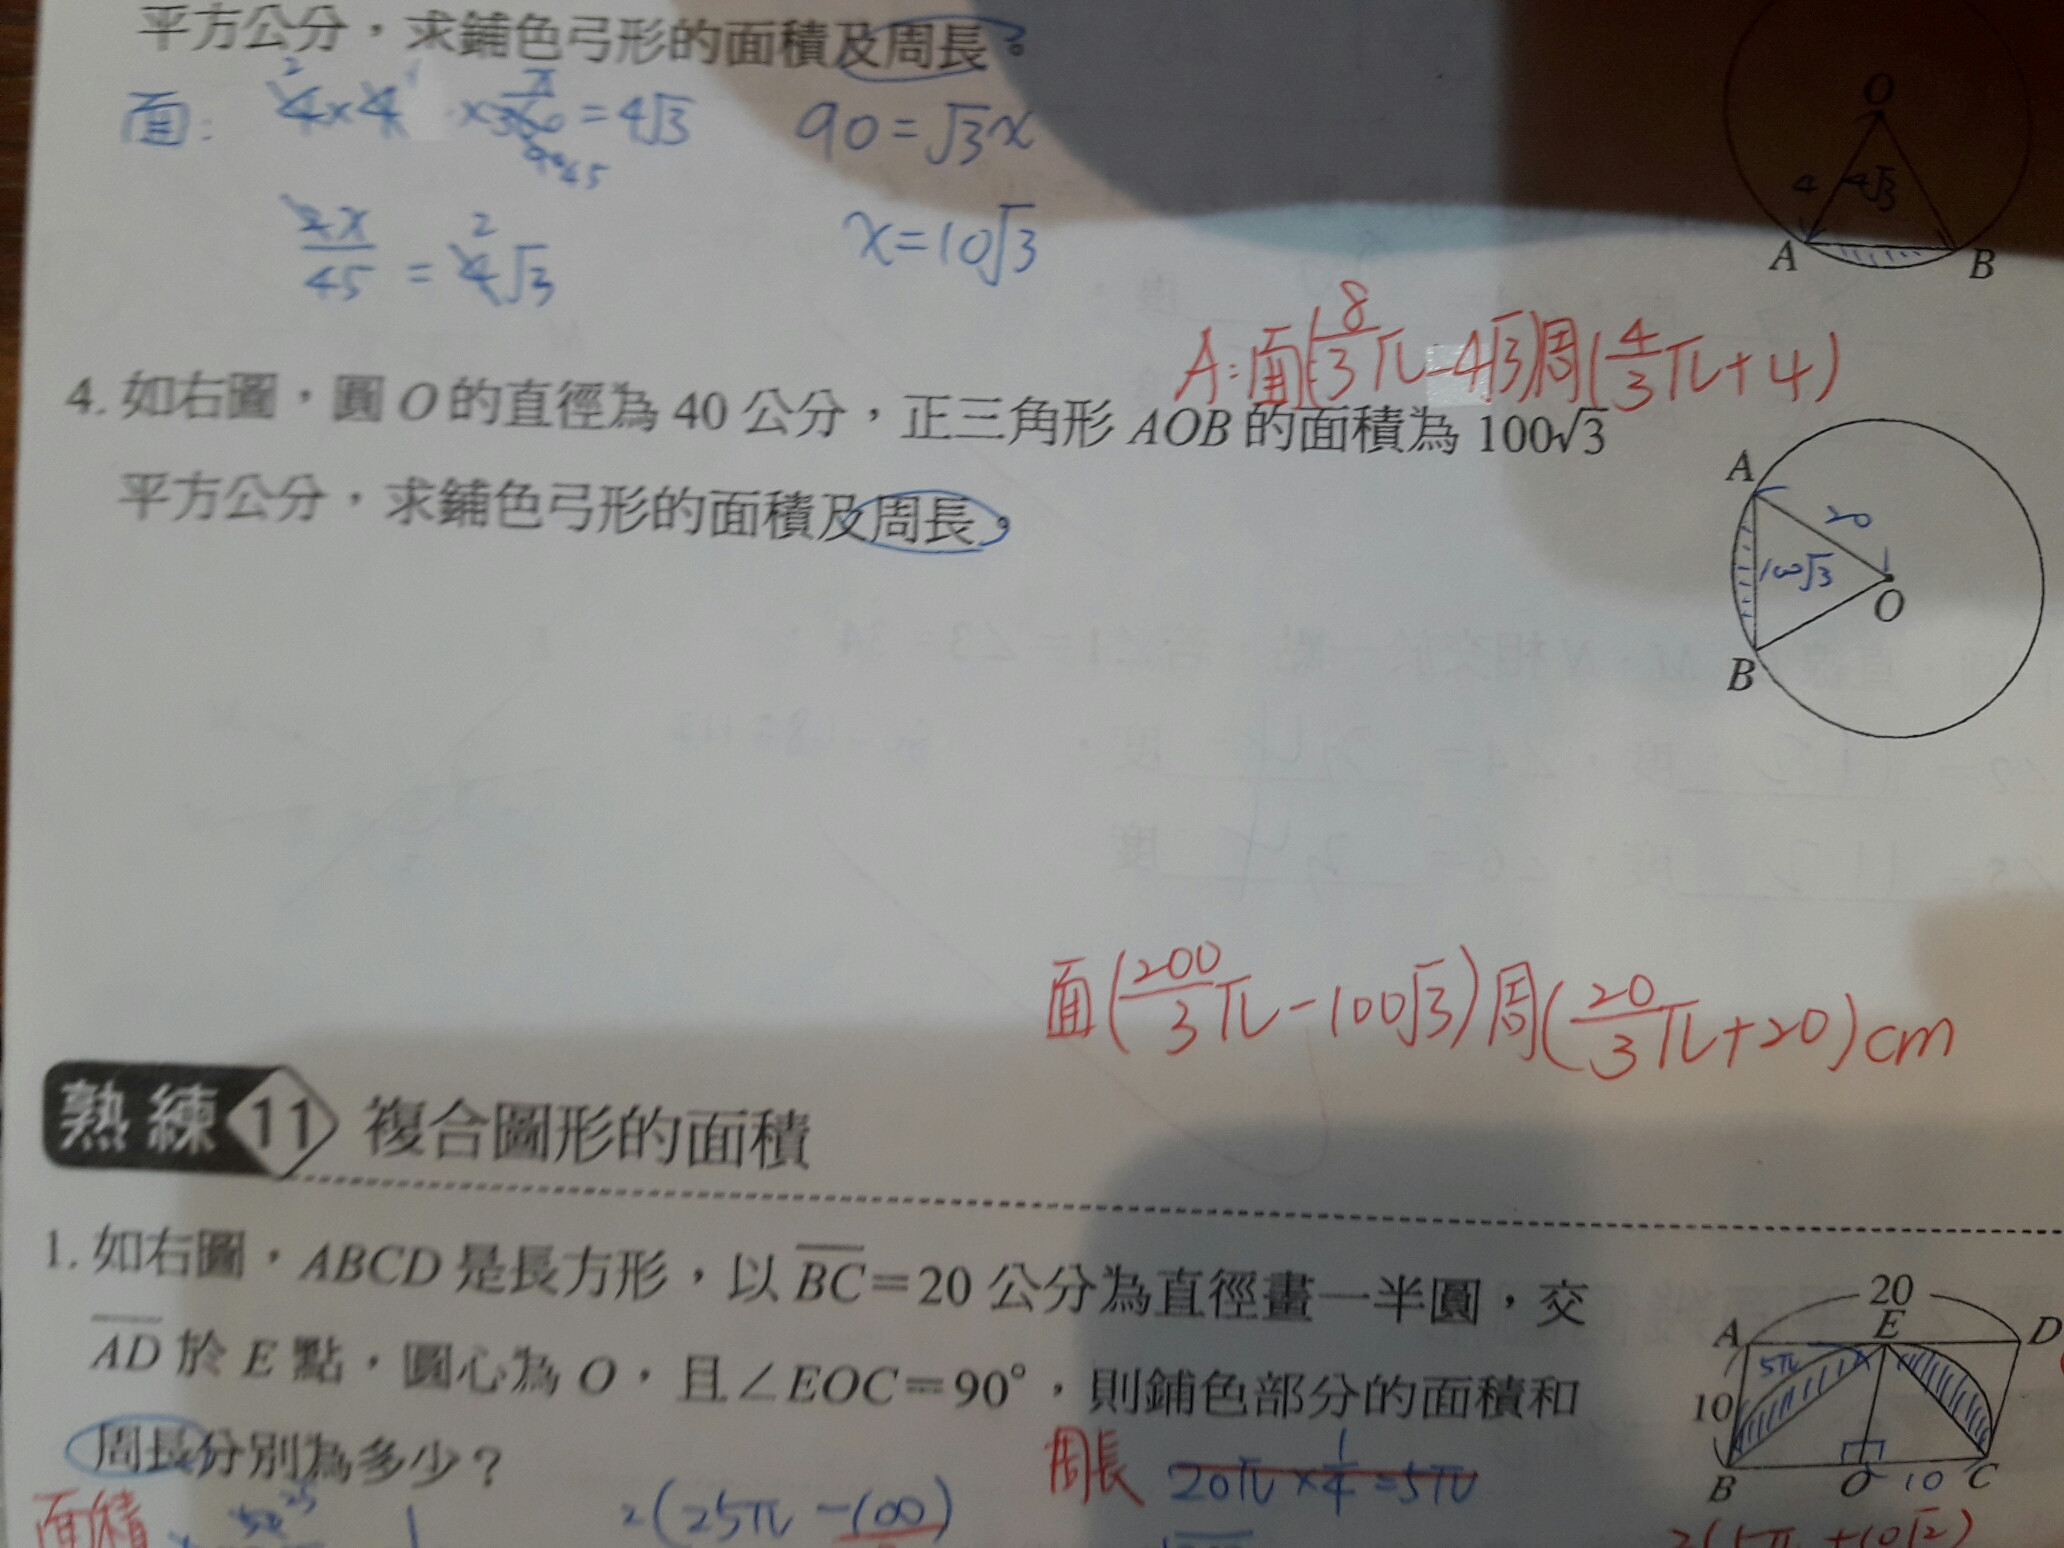 平方公分，求鋪色弓形的面積及周長。
面：
= 4√3
90 = √3x
45 = 4√3
2
x = 10√3
O
4
4√3
A
B
A：面(8/3π-4√3)周(4/3π+4)
4. 如右圖，圓 O 的直徑為 40 公分，正三角形 AOB 的面積為 100√3
平方公分，求鋪色弓形的面積及周長。
A
20
100√3
O
B
面(200/3π-100√3)周(20/3π+20)cm
熟練 11 複合圖形的面積
1. 如右圖，ABCD 是長方形，以 B̅C̅=20 公分為直徑畫一半圓，交
A̅D̅ 於 E 點，圓心為 O，且∠EOC=90°，則鋪色部分的面積和
周長分別為多少？
20
A
E
D
5π
10
B
O
10
C
周長 20π×1/4=5π
面積
2(25π-100)